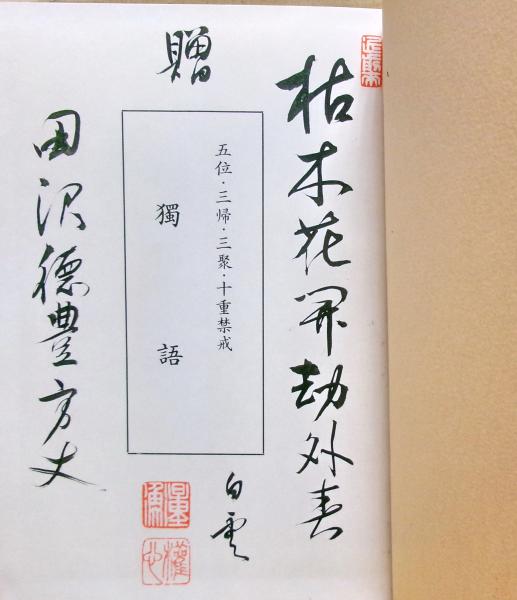 枯木花開劫外春
贈
五位・三帰・三聚・十重禁戒
獨語
白雲
田沢徳豊方丈